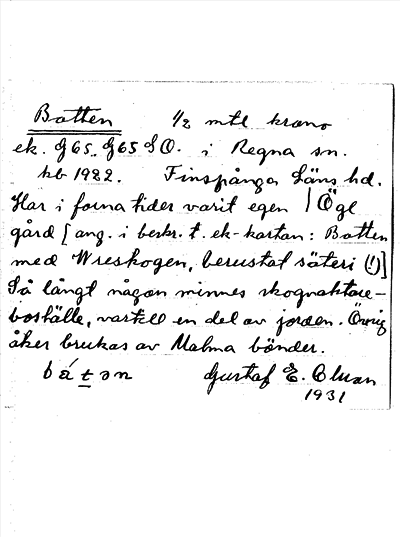 Botten 1/2 mtl krono
ek. G65. G65 SO. i Regna sn.
kb 1922. Finspånga Läns hd.
Har i forna tider varit egen / Ögl
gård [ang. i beskr. t. ek-kartan: Botten
med Wreskogen, berustat säteri (!)]
Så långt någon minnes skogvaktare-
boställe, vartill en del av jorden. Övrig
åker brukas av Malma bönder.
Gustaf E.
1931